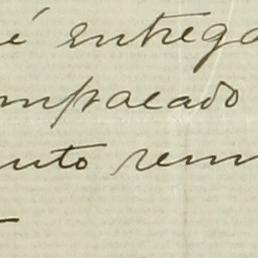 é entrega
mpacado
nto rem